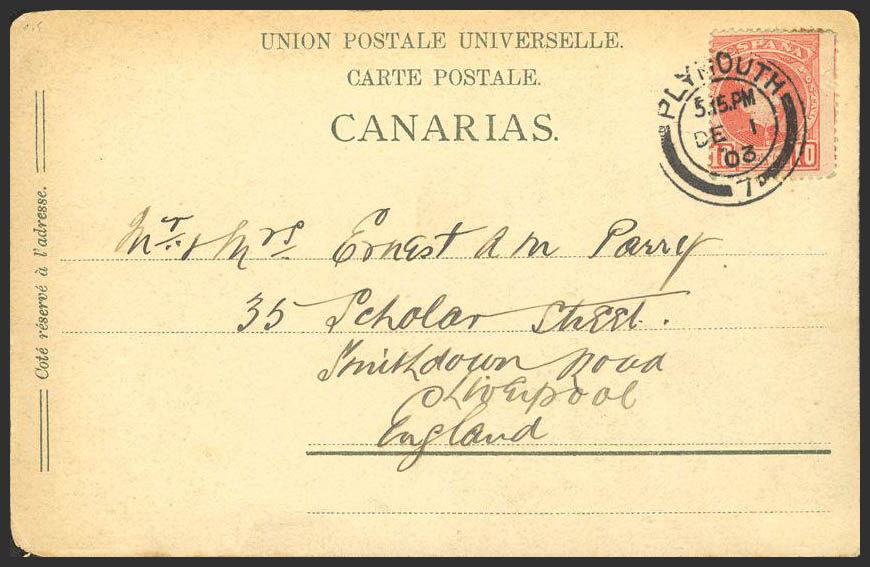 UNION POSTALE UNIVERSELLE.
CARTE POSTALE.
CANARIAS.
ESPAÑA
PLYMOUTH
5.15.PM
DE 1
03
7D
10
10
Coté réservé à l'adresse.
Mr. & Mrs Ernest A M Parry.
35 Scholar Street.
Smithdown Road
Liverpool
England